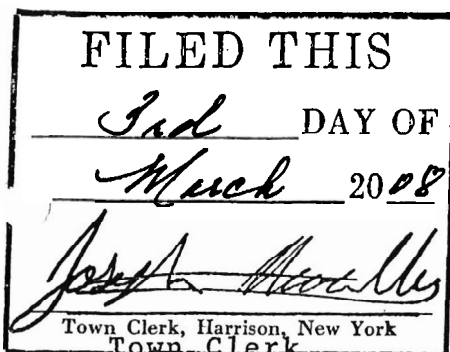 FILED THIS
3rd DAY OF
March 2008
Joseph
Town Clerk, Harrison, New York
Town Clerk